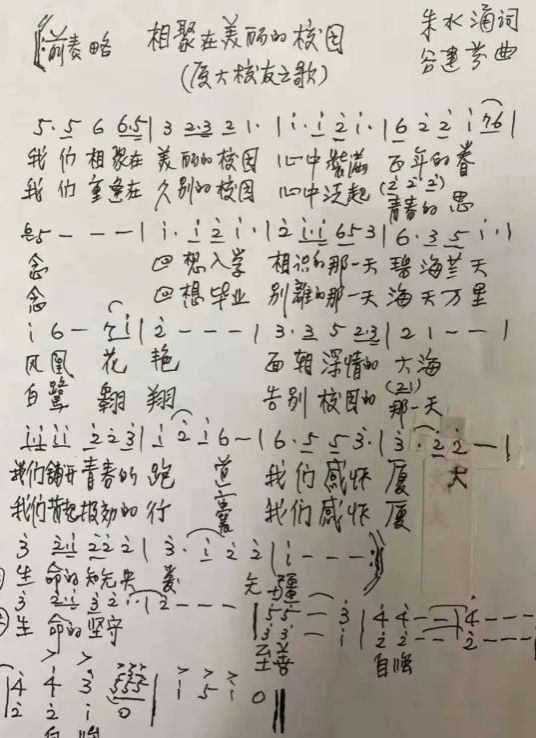 前奏略 相聚在美丽的校园 朱水涌词
(厦大校友之歌) 谷建芬曲
5·5 6 6·5 | 3 2·3 2 1· | i· i 2 i· | 6 2 2 i 76 |
我们相聚在 美丽的校园 心中装满 百年的眷
我们重逢在 久别的校园 心中泛起 (2 2 2) 青春的思
5 - - - | i· i 2 i · | 2 i·i 65 3 | 6·3 5 i· |
念 回想入学 相识的那一天 碧海蓝天
念 回想毕业 别离的那一天 海天万里
i 6 - 7 i | 2 - - - | 3·3 5 2·3 | 2 1 - - |
凤凰 花 艳 面朝深情的 大海
白鹭 翱翔 告别校园的 (21) 那一天
i i i i 2 2 3 | i 2 i 6 - | 6·5 5 3· | 3· 2 2 - |
我们铺开青春的跑 道 我们感怀 厦 大
我们背起报效的行 囊 我们感怀 厦
3 2·i 2 2 2 | 3· i 2 2 | i - - -
生 命的 无 疆
3 2·i 3 2 i· | 2 - - - | 5 5 - 3 | 4 4 - - | 4 - - -
3 3 - i | 2 2 - - | 2 - - -
生 命的坚守 至善 自强
4 4 3 5 5 5 | i 5 i 0
2 2 i 0
自强